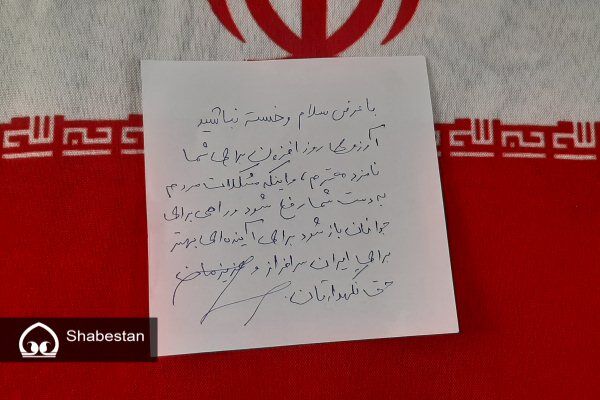 با عرض سلام و خسته نباشید
آرزوی روز افزون برای شما
نامزد محترم، و اینکه مشکلات مردم
به دست شما رفع شود و راهی برای
جوانان باز شود برای آینده‌ای بهتر
برای ایران سرافراز و عزیزمان
حق نگهدارتان.
Shabestan